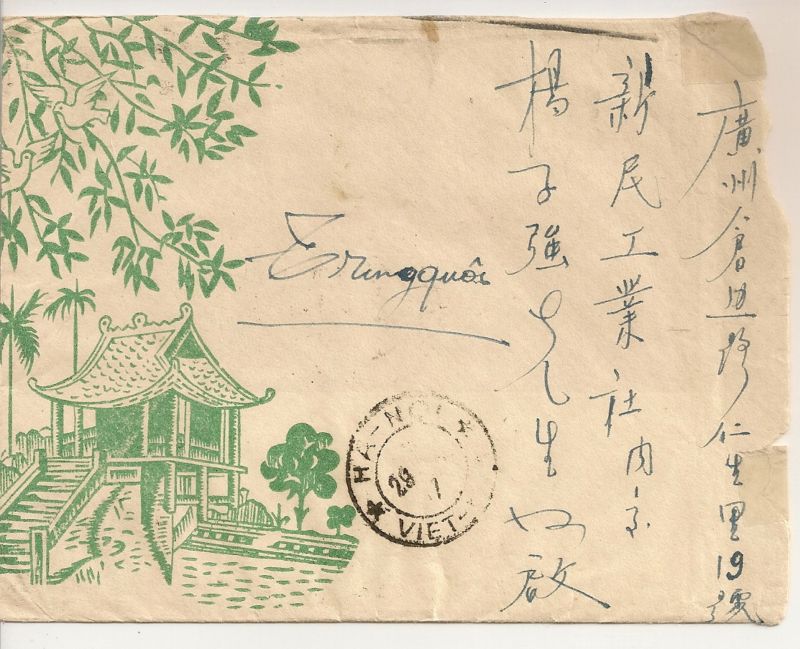 廣州倉边路仁生里19號
新民工業社內交
楊子強先生 啟
Trungquôc
HA-NOI
VIET